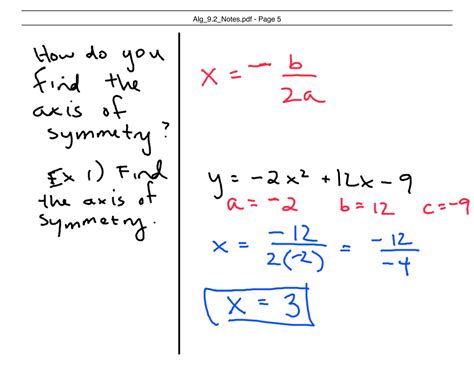 Alg_9.2_Notes.pdf - Page 5
How do you
find the
axis of
symmetry?
x = - b / 2a
Ex 1) Find
the axis of
symmetry.
y = -2x² + 12x - 9
a = -2 b = 12 c = -9
x = -12 / 2(-2) = -12 / -4
x = 3